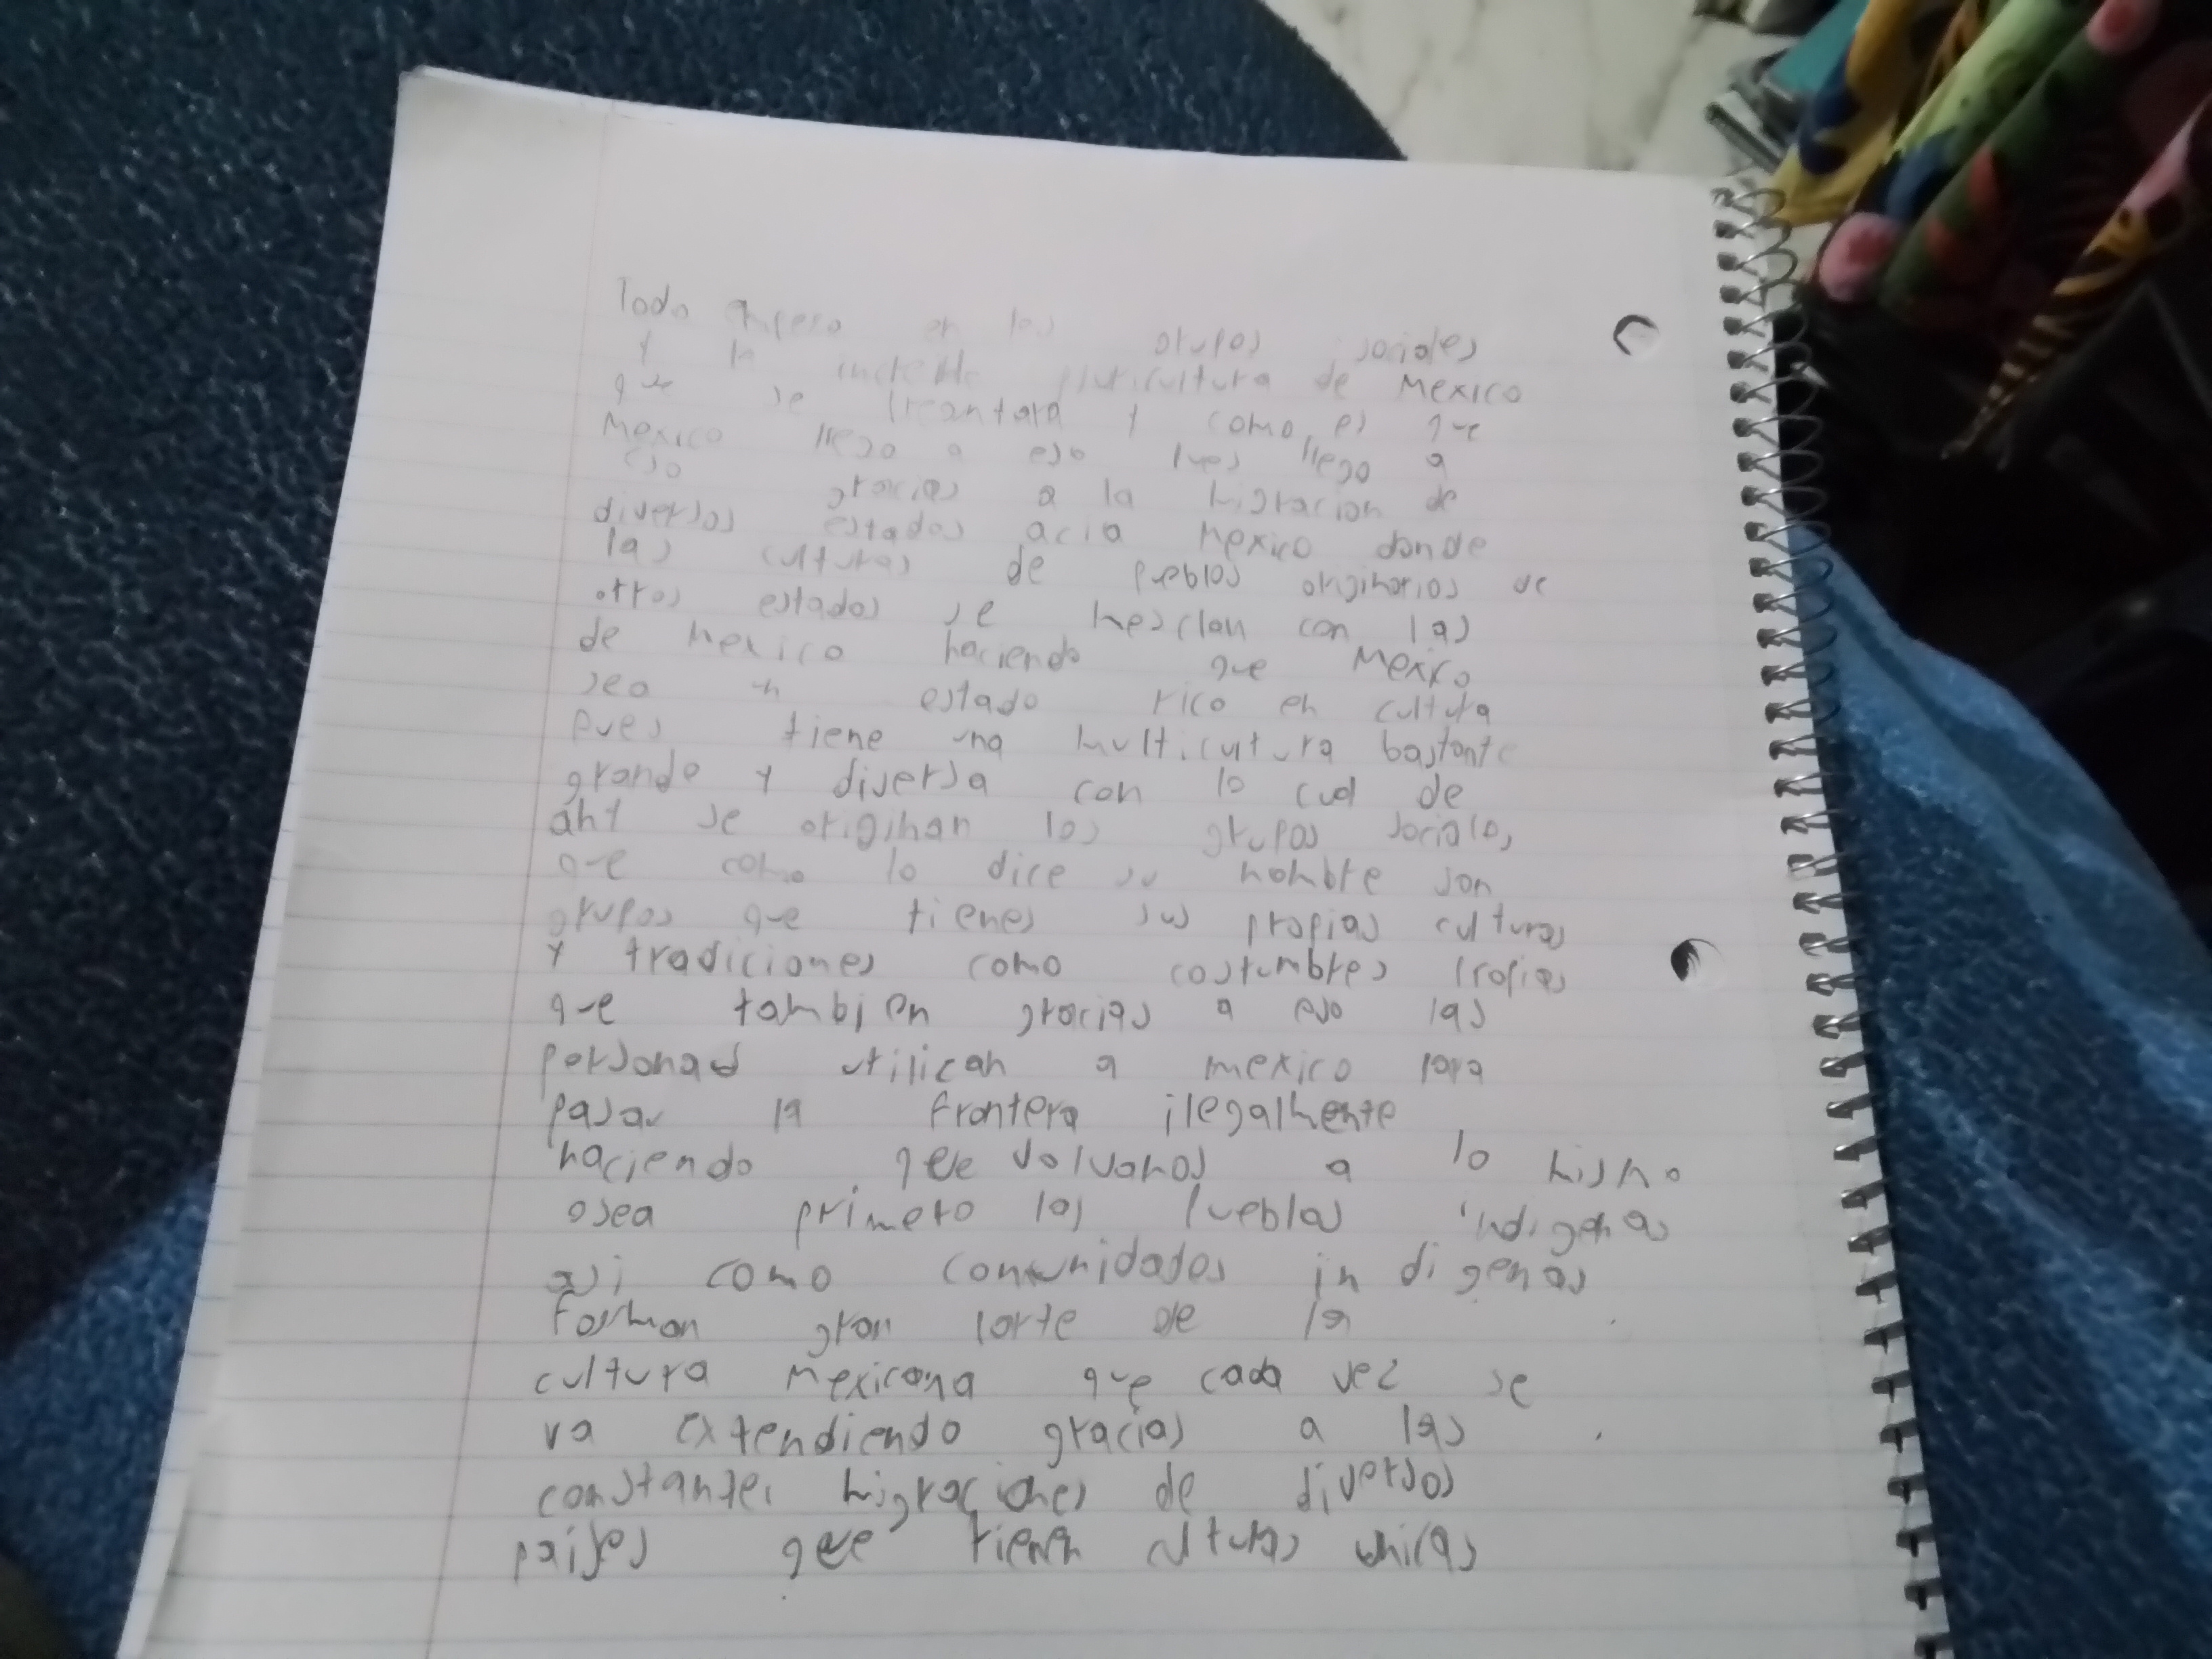 Todo empeso en los grupos sociales
y la increible pluricultura de Mexico
que se y como es que
Mexico llego a eso pues llego a
eso gracias a la migracion de
diversos estados acia Mexico donde
las culturas de pueblos originarios de
otros estados se mesclan con las
de Mexico haciendo que Mexico
sea un estado rico en cultura
pues tiene una multicultura bastante
grande y diversa con lo cual de
ahy se originan los grupos sociales,
que como lo dice su nombre son
grupos que tienes sus propias culturas
y tradiciones como costumbres propias
que tambien gracias a eso las
personas utilican a mexico para
pasar la frontera ilegalmente
haciendo que volvamos a lo mismo
osea primero los pueblos indigenas
asi como comunidades indigenas
forman gran parte de la
cultura mexicana que cada vez se
va extendiendo gracias a las
constantes migraciones de diversos
paises que tienen culturas unicas